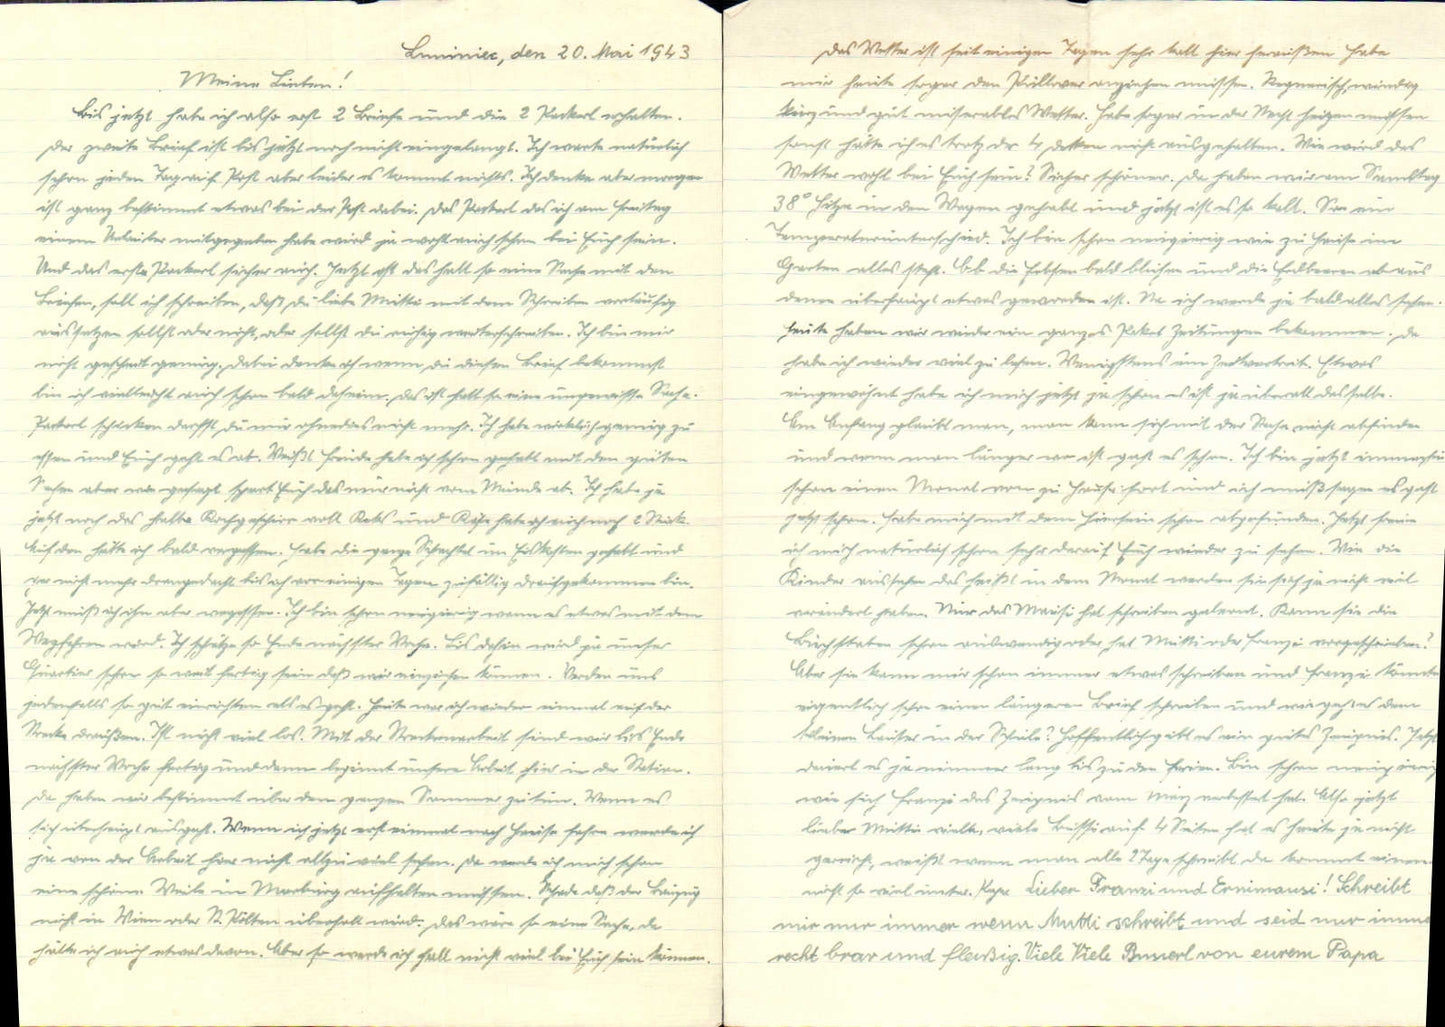 Luniniec, den 20. Mai 1943
Meine Lieben!
Bis jetzt habe ich also erst 2 Briefe und die 2 Packerl erhalten.
Der zweite Brief ist bis jetzt noch nicht eingelangt. Ich warte natürlich
schon jeden Tag auf Post aber leider es kommt nichts. Ich denke aber morgen
ist ganz bestimmt etwas bei der Post dabei. Das Packerl das ich am Freitag
einem Urlauber mitgegeben habe wird ja wohl auch schon bei Euch sein.
Und das erste Packerl sicher auch. Jetzt ist das halt so eine Sache mit den
Briefen, soll ich schreiben, daß du liebe Mutti mit dem Schreiben vorläufig
aussetzen sollst oder nicht, oder sollst du ruhig weiterschreiben. Ich bin mir
nicht gescheit genug. Dabei denke ich wenn du diesen Brief bekommst
bin ich vielleicht auch schon bald daheim. Das ist halt so eine ungewisse Sache.
Packerl schicken darfst du mir ohnedies nicht mehr. Ich habe wirklich genug zu
essen und Euch geht es ab. Weißt Freude habe ich schon gehabt mit den guten
Sachen aber wie gesagt spart Euch das nur nicht vom Munde ab. Ich habe ja
jetzt noch das halbe Kochgeschirr voll Keks und Käse habe ich auch noch 2 Stück.
Auf den hätte ich bald vergessen. Habe die ganze Schachtel im Eiskasten gehabt und
gar nicht mehr drangedacht bis ich vor einigen Tagen zufällig draufgekommen bin.
Jetzt muß ich ihn aber wegessen. Ich bin schon neugierig wann es etwas mit dem
Wegfahren wird. Ich schätze so Ende nächster Woche. Bis dahin wird ja unser
Quartier schon so weit fertig sein daß wir einziehen können. Werden uns
jedenfalls so gut einrichten als es geht. Heute war ich wieder einmal auf der
Strecke draußen. Ist nicht viel los. Mit der Streckenarbeit sind wir bis Ende
nächster Woche fertig und dann beginnt unsere Arbeit hier in der Station.
Da haben wir bestimmt über den ganzen Sommer zu tun. Wenn es
sich überhaupt ausgeht. Wenn ich jetzt erst einmal nach Hause fahre werde ich
ja von der Arbeit hier nicht allzu viel sehen. Da werde ich mich schon
eine schöne Weile in Marburg aufhalten müssen. Schade daß der
nicht in Wien oder St. Pölten überholt wird. Das wäre so eine Sache, da
hätte ich auch etwas davon. Aber so werde ich halt nicht viel bei Euch sein können.
Das Wetter ist seit einigen Tagen sehr kalt hier heraußen habe
mir heute sogar den Pullover anziehen müssen. Regnerisch, windig
kurz und gut miserables Wetter. Habe sogar in der Nacht heizen müssen
sonst hätte ich es trotz der 4 Decken nicht ausgehalten. Wie wird das
Wetter wohl bei Euch sein? Sicher schöner. Da haben wir am Samstag
38° Hitze in den Wagen gehabt und jetzt ist es so kalt. So ein
Temperaturunterschied. Ich bin schon neugierig wie zu Hause im
Garten alles steht. Ob die Erbsen bald blühen und die Erdbeeren ob aus
denen überhaupt etwas geworden ist. Na ich werde ja bald alles sehen.
Heute haben wir wieder ein ganzes Paket Zeitungen bekommen. Da
habe ich wieder viel zu lesen. Wenigstens ein Zeitvertreib. Etwas
eingewöhnt habe ich mich jetzt ja schon es ist ja überall dasselbe.
Am Anfang glaubt man, man kann sich mit der Sache nicht abfinden
und wenn man länger wo ist geht es schon. Ich bin jetzt immerhin
schon einen Monat von zu Hause fort und ich muß sagen es geht
jetzt schon. Habe mich mit dem Hiersein schon abgefunden. Jetzt freue
ich mich natürlich schon sehr darauf Euch wieder zu sehen. Wie die
Kinder aussehen das heißt in dem Monat werden sie sich ja nicht viel
verändert haben. Nur das Mausi hat schreiben gelernt. Kann sie die
Buchstaben schon auswendig oder hat Mutti oder Franzi vorgeschrieben?
Aber sie kann mir schon immer etwas schreiben und Franzi könnte
eigentlich schon einen längeren Brief schreiben und wie geht es dem
kleinen in der Schule? Hoffentlich gibt es ein gutes Zeugnis. Jetzt
dauert es ja nimmer lang bis zu den Ferien. Bin schon neugierig
wie sich Franzi das Zeugnis vom März verbessert hat. Also jetzt
liebe Mutti viele, viele Bussi auf 4 Seiten hat es heute ja nicht
gereicht, weißt wenn man alle 2 Tage schreibt da kommt einem
nicht so viel unter. Papa Lieber Franzi und Ernimausi! Schreibt
mir nur immer wenn Mutti schreibt und seid nur immer
recht brav und fleißig. Viele Viele Busserl von eurem Papa